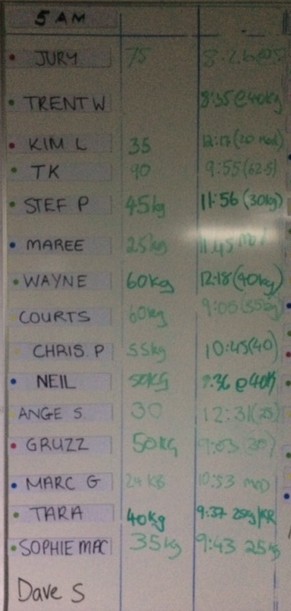 5 AM
JURY 75 8:26@5
TRENT W 8:35@40kg
KIM L 35 12:17(20
TK 90 9:55(62.5)
STEF P 45kg 11:56 (30kg)
MAREE 25kg 11:45
WAYNE 60kg 12:18(40kg)
COURTS 60kg 9:00(55kg)
CHRIS. P 55kg 10:45(40)
NEIL 50KG 7:36 @40K
ANGE S. 30 12:31(25)
GRUZZ 50KG 9:03
MARC G 24 KB 10:53 MOD
TARA 40kg 9:37 25kg/KR
SOPHIE MAC 35kg 9:43 25kg
Dave S